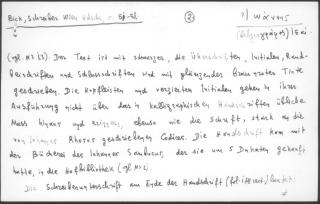 Bick, Schreiber Wien
(vgl. Nr 13). Der Text ist mit schwarzer, die Überschriften, Initialen, Rand-
leisten und Schlussschriften sind mit glänzender braunroter Tinte
geschrieben. Die Kopfleisten und verzierten Initialen gehen in ihrer
Ausführung nicht über das in kalligraphischen Handschriften übliche
Mass hinaus und zeigen, ebenso wie die Schrift, stark an die
von Johannes Rhosos geschriebenen Codices. Die Handschrift kam mit
der Bücherei des Johannes Sambucus, der sie um 5 Dukaten gekauft
hatte, in die Hofbibliothek (vgl. Nr 2).
Die Schreiberunterschrift am Ende der Handschrift lautet: